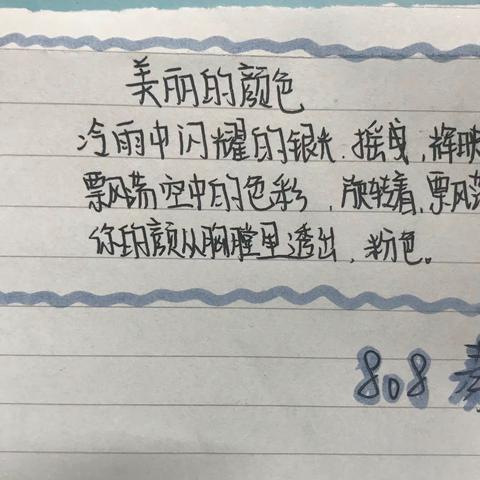 美丽的颜色
冷雨中闪耀的银光.摇曳,辉映
飘荡空中的色彩,旋转着,飘荡
你的颜从胸膛里透出,粉色。
808